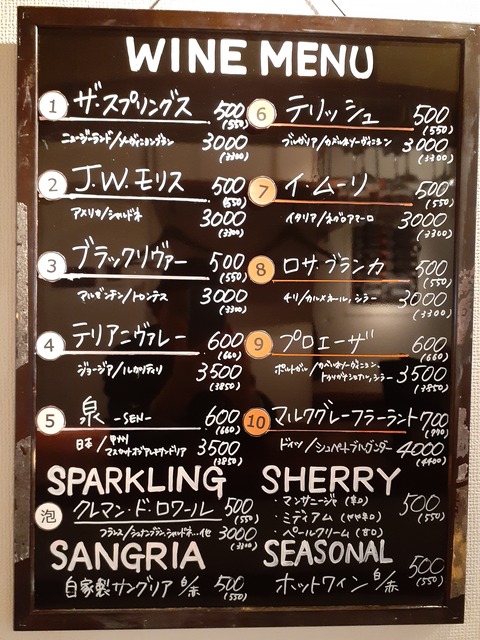 WINE MENU
① ザ・スプリングス 500 (550)
ニュージーランド/ソーヴィニヨンブラン 3000 (3300)
② J.W.モリス 500 (550)
アメリカ/シャルドネ 3000 (3300)
③ ブラックリヴァー 500 (550)
アルゼンチン/トロンテス 3000 (3300)
④ テリアニヴァレー 600 (660)
ジョージア/ルカツィテリ 3500 (3850)
⑤ 泉 -SEN- 600 (660)
日本/甲州 マスカットオブアレキサンドリア 3500 (3850)
⑥ テリッシュ 500 (550)
ブルガリア/カベルネソーヴィニヨン 3000 (3300)
⑦ イ・ムーリ 500 (550)
イタリア/ネグロアマーロ 3000 (3300)
⑧ ロサ・ブランカ 500 (550)
チリ/カルメネール,シラー 3000 (3300)
⑨ プロエーザ 600 (660)
ポルトガル/カベルネソーヴィニヨン,
トゥリガナショナル,シラー 3500 (3850)
⑩ マルクグレーフラーラント 700 (990)
ドイツ/シュペートブルグンダー 4000 (4400)
SPARKLING
泡 クレマン・ド・ロワール 500 (550)
フランス/シュナンブラン,シャルドネ..他 3000 (3300)
SANGRIA
自家製サングリア 白/赤 500 (550)
SHERRY
・マンサニージャ (辛口)
・ミディアム (やや辛口) 500 (550)
・ペールクリーム (甘口)
SEASONAL
ホットワイン 白/赤 500 (550)